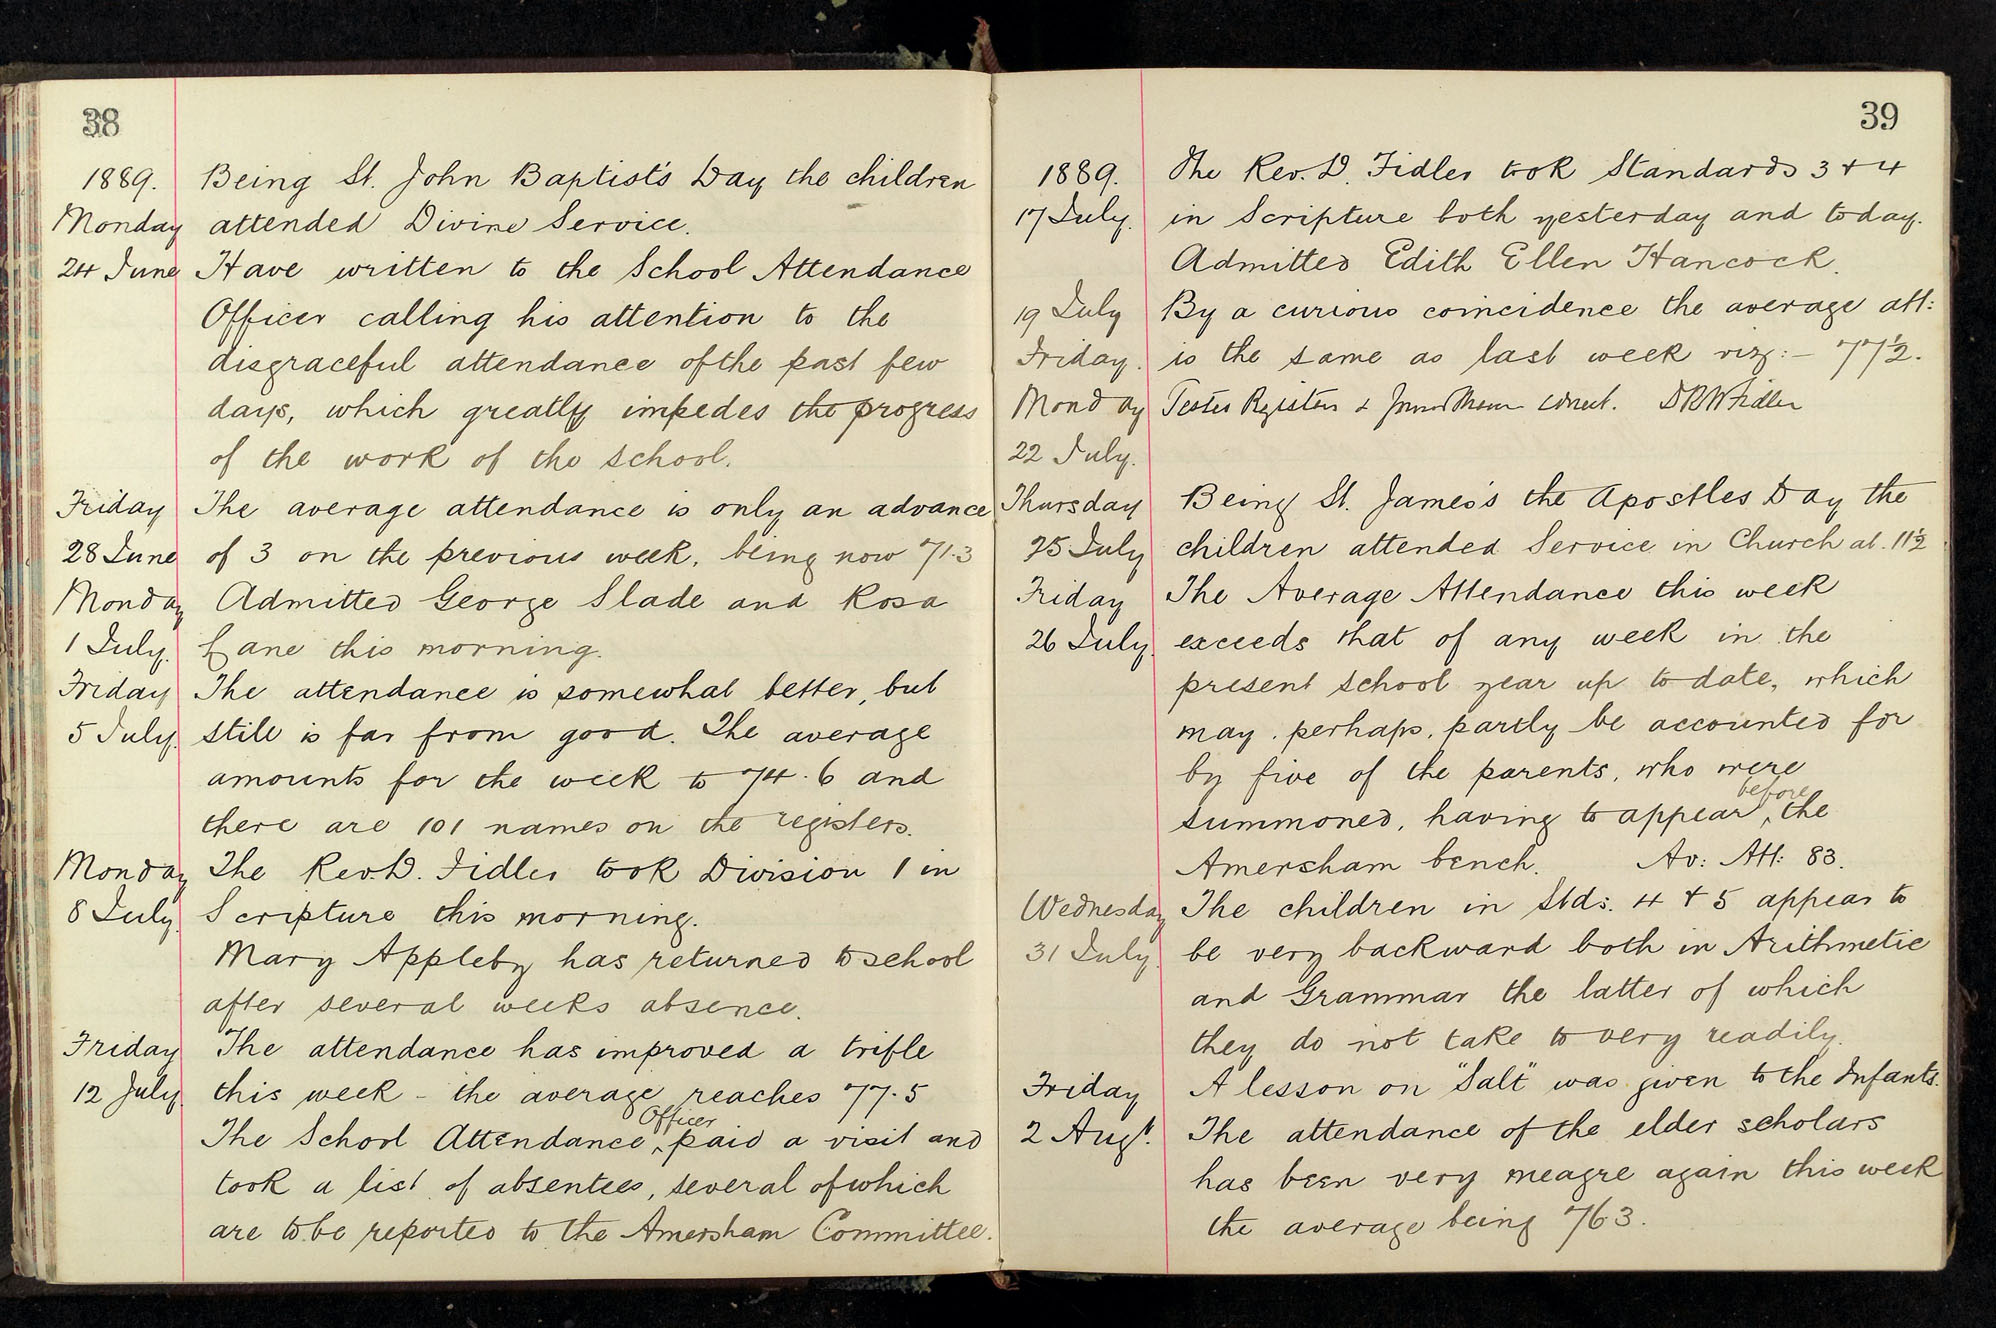 38
1889. Being St. John Baptist's Day the children
Monday attended Divine Service.
24 June Have written to the School Attendance
Officer calling his attention to the
disgraceful attendance of the past few
days, which greatly impedes the progress
of the work of the school.
Friday The average attendance is only an advance
28 June of 3 on the previous week, being now 71.3
Monday Admitted George Slade and Rosa
1 July. Lane this morning.
Friday The attendance is somewhat better, but
5 July. still is far from good. The average
amounts for the week to 74.6 and
there are 101 names on the registers.
Monday The Rev. D. Fidler took Division 1 in
8 July. Scripture this morning.
Mary Appleby has returned to school
after several weeks absence.
Friday The attendance has improved a trifle
12 July. this week - the average reaches 77.5
The School Attendance Officer paid a visit and
took a list of absentees, several of which
are to be reported to the Amersham Committee.
39
1889. The Rev. D. Fidler took Standards 3 + 4
17 July. in Scripture both yesterday and today.
Admitted Edith Ellen Hancock.
19 July By a curious coincidence the average att:
Friday. is the same as last week viz:- 77½.
Monday Tested Registers & correct. DRW Fidler
22 July.
Thursday Being St. James's the Apostles Day the
25 July children attended Service in Church at 11½
Friday The Average Attendance this week
26 July. exceeds that of any week in the
present school year up to date, which
may, perhaps, partly be accounted for
by five of the parents, who were
summoned, having to appear before the
Amersham bench. Av: Att: 83.
Wednesday The children in Stds. 4 + 5 appear to
31 July. be very backward both in Arithmetic
and Grammar the latter of which
they do not take to very readily.
Friday A lesson on "Salt" was given to the Infants.
2 Augt. The attendance of the elder scholars
has been very meagre again this week
the average being 76.3.